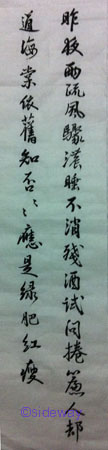 昨夜雨疏風驟濃睡不消殘酒試問捲簾人却
道海棠依舊知否〻〻應是綠肥紅瘦
©sideway